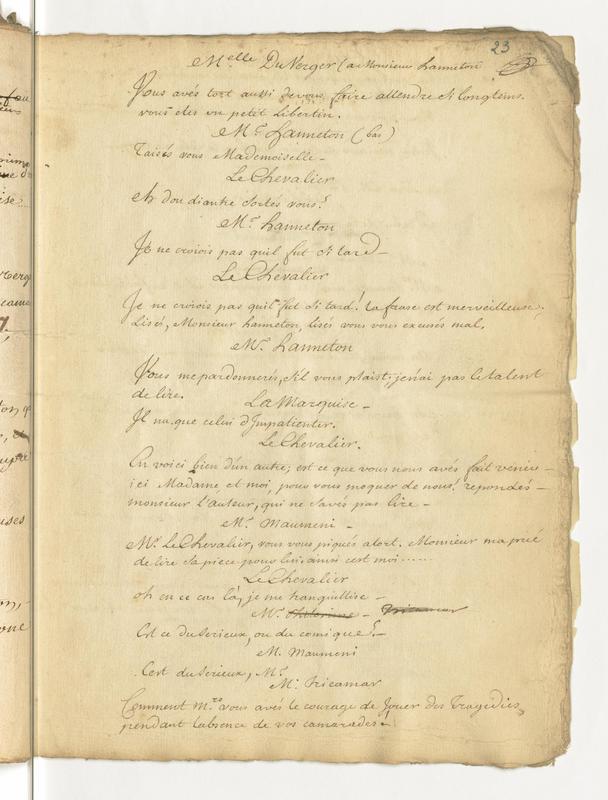 23
Melle DuVerger (a Monsieur hanneton
Vous avés tort aussi devous faire attendre si longtems.
vous etes un petit Libertin.
Mr. hanneton (bas)
Taisés vous Mademoiselle _
Le Chevalier
eh dou diantre sortés vous?
Mr. hanneton
Je ne croiois pas quil fut si tard _
Le Chevalier
Je ne croiois pas quil fut si tard! la frase est merveilleuse;
Lisés, Monsieur hanneton, lisés vous vous excusés mal.
Mr. hanneton
Vous me pardonnerés, s'il vous plaist; jen'ai pas le talent
de lire.
La Marquise _
Il na que celui d'Impatienter.
Le Chevalier.
En voici bien d'un autre; est ce que vous nous avés fait venir _
ici Madame et moi, pour vous moquer de nous! repondés _
monsieur l'auteur, qui ne savés pas lire _
Mr. Maumeni _
Mr. Le Chevalier, vous vous piqués atort. Monsieur ma prié
de lire sa piece pour lui; ainsi cest moi ......
Le Chevalier
oh en ce cas là, je me tranquillise _
Mr. _ Tricamar
Est ce du serieux, ou du comique? _
M. Maumeni
C'est du serieux, Mr.
Mr. Tricamar
Comment Mrs. vous avés le courage de Jouer des Tragedies
pendant labsence de vos camarades!